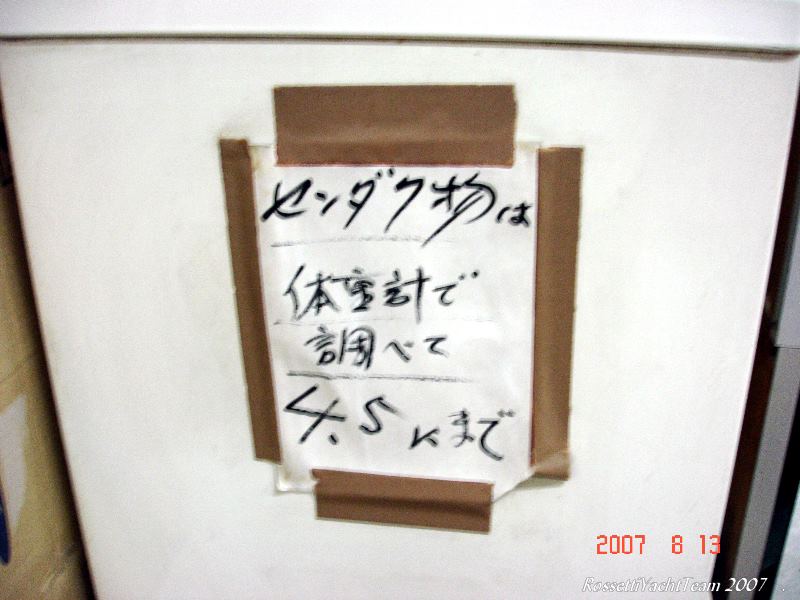 センダク物は
体重計で
調べて
4.5Kまで
2007 8 13
RossettiYachtTeam 2007 .